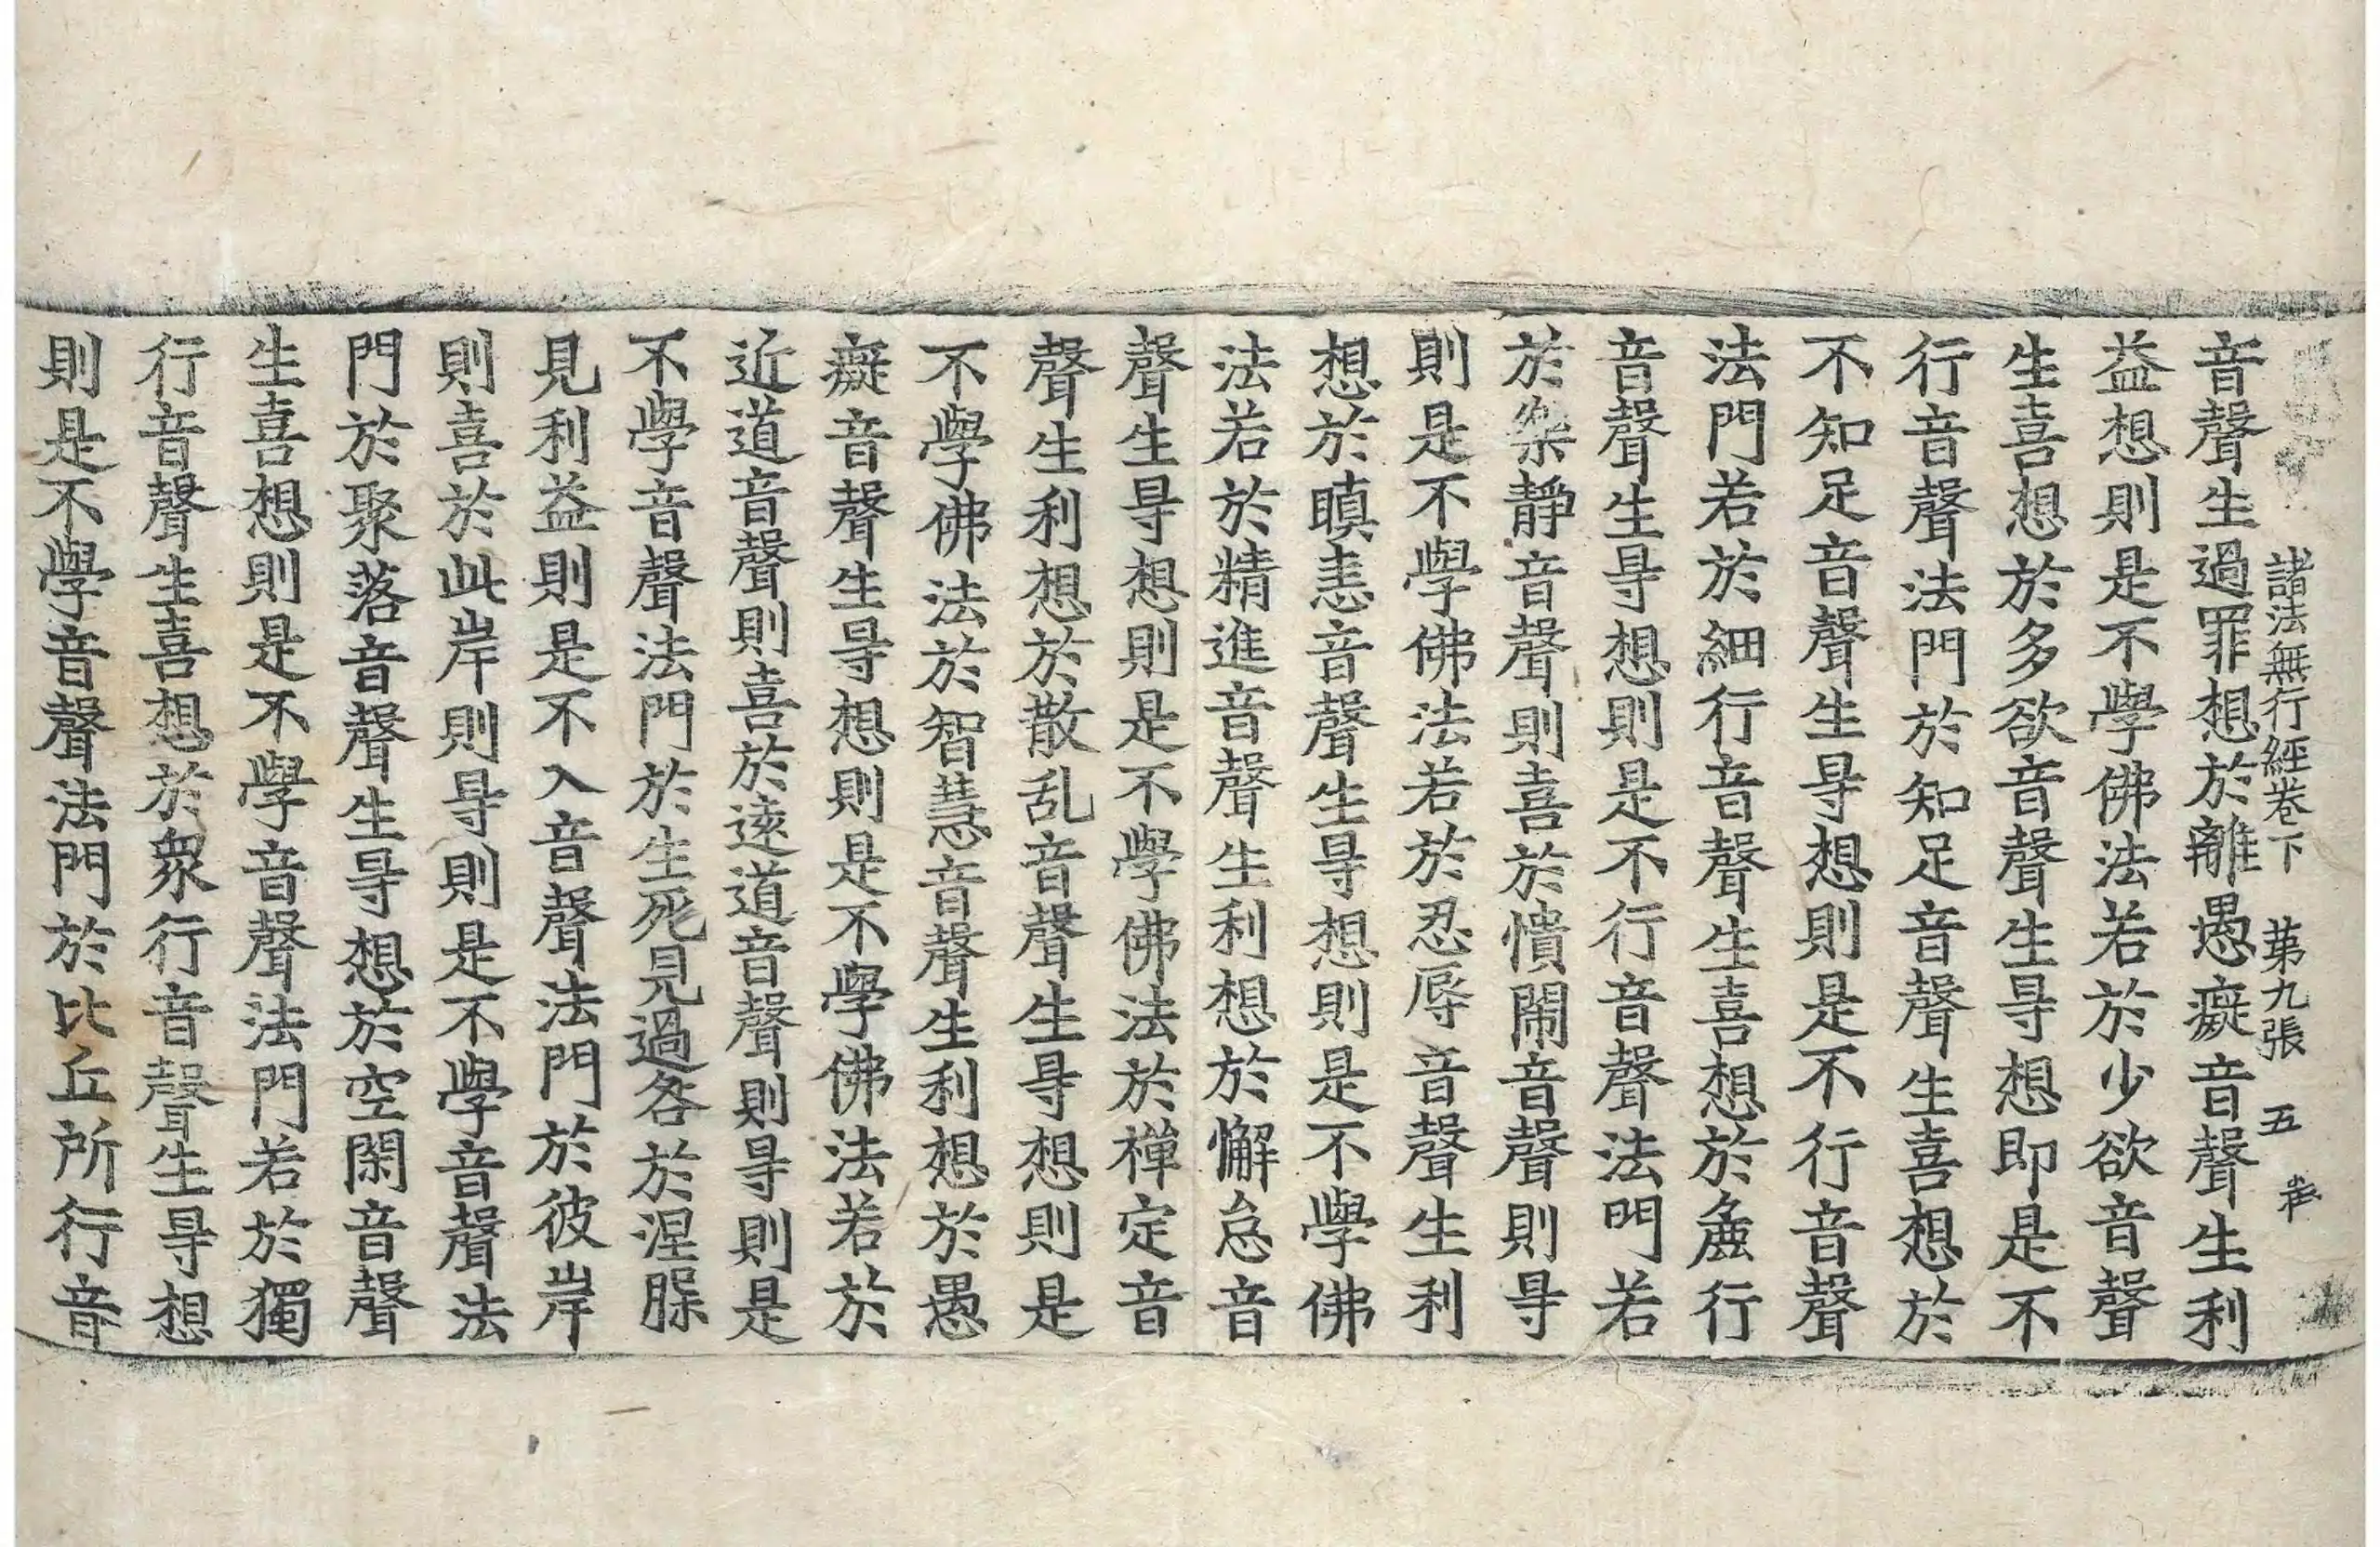 諸法無行經卷下 苐九張 五
音聲生過罪想於離愚癡音聲生利
益想則是不學佛法若於少欲音聲
生喜想於多欲音聲生㝵想即是不
行音聲法門於知足音聲生喜想於
不知足音聲生㝵想則是不行音聲
法門若於細行音聲生喜想於麁行
音聲生㝵想則是不行音聲法門若
於樂靜音聲則喜於憒閙音聲則㝵
則是不學佛法若於忍辱音聲生利
想於瞋恚音聲生㝵想則是不學佛
法若於精進音聲生利想於懈怠音
聲生㝵想則是不學佛法於禪定音
聲生利想於散乱音聲生㝵想則是
不學佛法於智慧音聲生利想於愚
癡音聲生㝵想則是不學佛法若於
近道音聲則喜於遠道音聲則㝵則是
不學音聲法門於生死見過咎於涅槃
見利益則是不入音聲法門於彼岸
則喜於此岸則㝵則是不學音聲法
門於聚落音聲生㝵想於空閑音聲
生喜想則是不學音聲法門若於獨
行音聲生喜想於衆行音聲生㝵想
則是不學音聲法門於比丘所行音